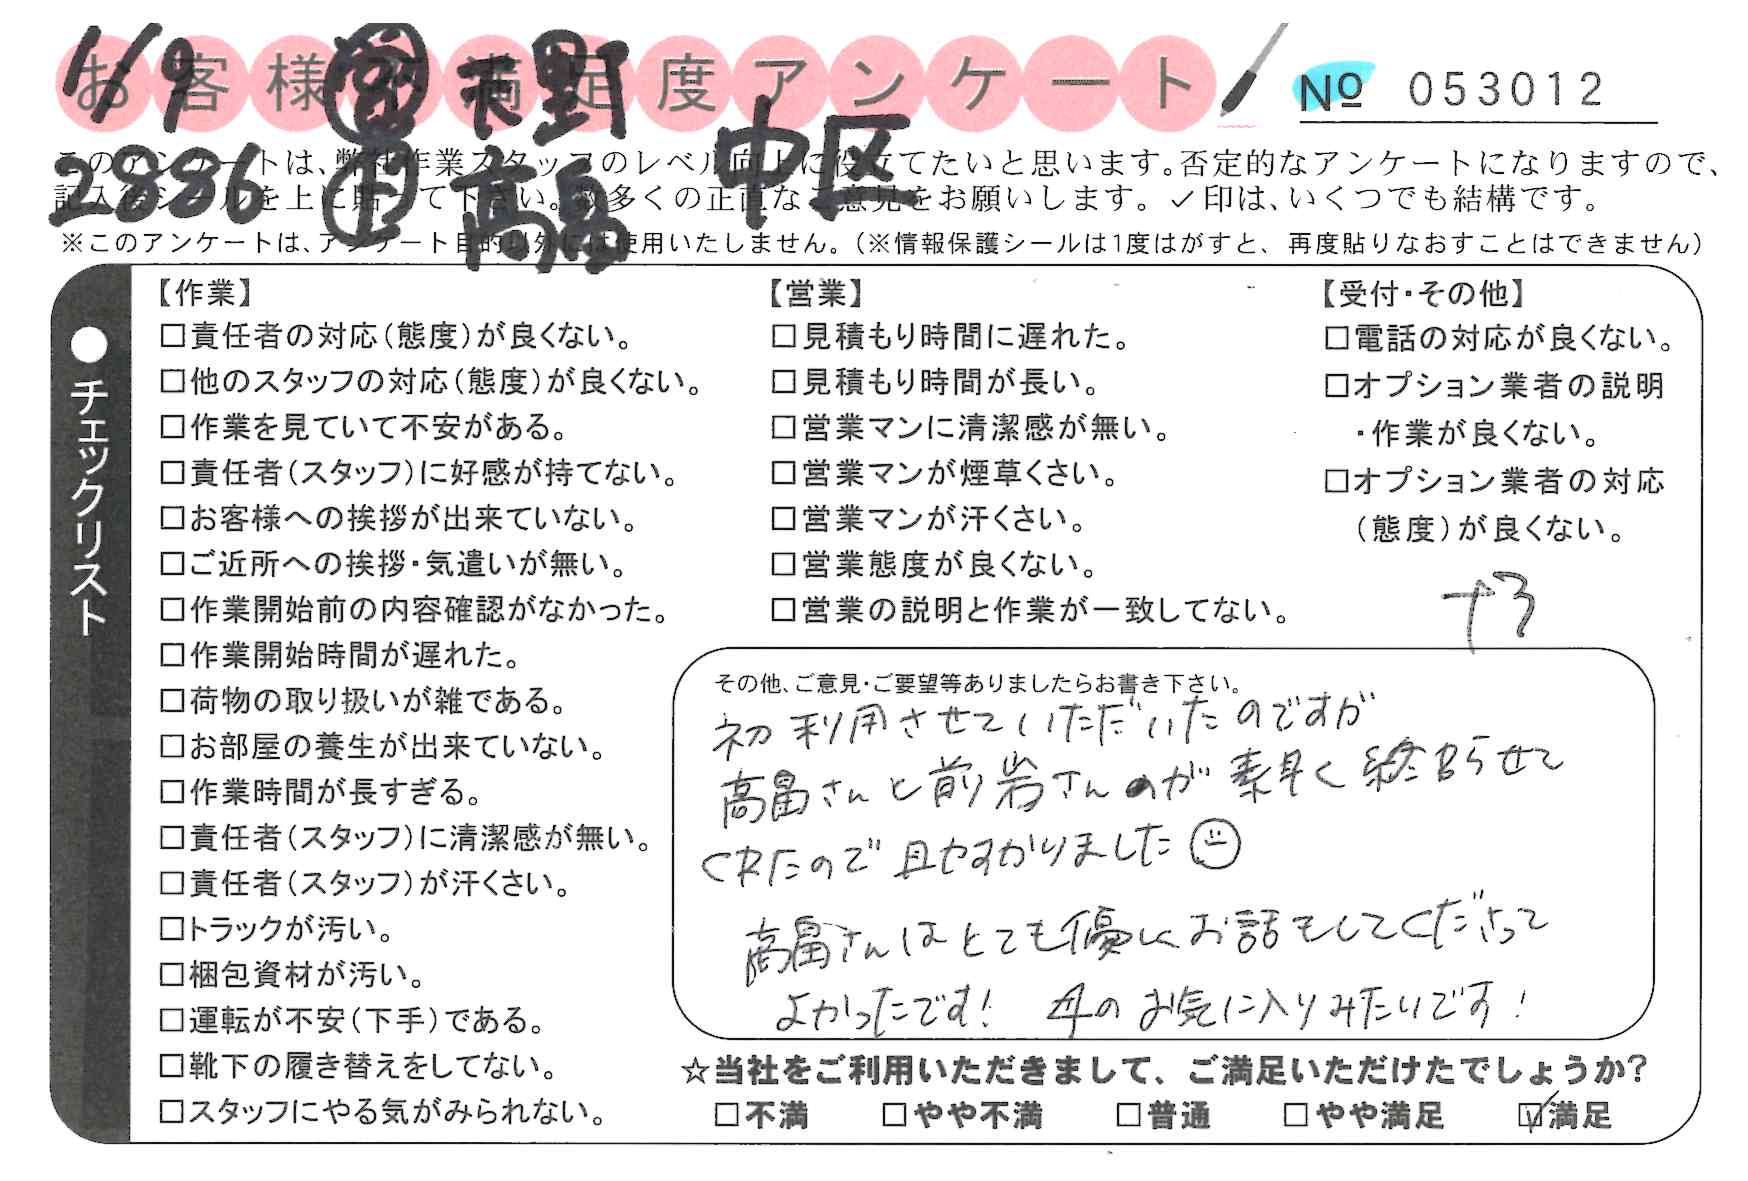 お客様不満足度アンケート
No 053012
1/9 営 天野
2886 上 高畠 中区
このアンケートは、弊社作業スタッフのレベル向上に役立てたいと思います。否定的なアンケートになりますので、
記入後シールを上に貼って下さい。数多くの正直なご意見をお願いします。✓印は、いくつでも結構です。
※このアンケートは、アンケート目的以外には使用いたしません。（※情報保護シールは1度はがすと、再度貼りなおすことはできません）
●チェックリスト
【作業】
□責任者の対応（態度）が良くない。
□他のスタッフの対応（態度）が良くない。
□作業を見ていて不安がある。
□責任者（スタッフ）に好感が持てない。
□お客様への挨拶が出来ていない。
□ご近所への挨拶・気遣いが無い。
□作業開始前の内容確認がなかった。
□作業開始時間が遅れた。
□荷物の取り扱いが雑である。
□お部屋の養生が出来ていない。
□作業時間が長すぎる。
□責任者（スタッフ）に清潔感が無い。
□責任者（スタッフ）が汗くさい。
□トラックが汚い。
□梱包資材が汚い。
□運転が不安（下手）である。
□靴下の履き替えをしてない。
□スタッフにやる気がみられない。
【営業】
□見積もり時間に遅れた。
□見積もり時間が長い。
□営業マンに清潔感が無い。
□営業マンが煙草くさい。
□営業マンが汗くさい。
□営業態度が良くない。
□営業の説明と作業が一致してない。
【受付・その他】
□電話の対応が良くない。
□オプション業者の説明
・作業が良くない。
□オプション業者の対応
（態度）が良くない。
+3
その他、ご意見・ご要望等ありましたらお書き下さい。
初利用させていただいたのですが
高畠さんと前岩さんが素早く終わらせて
くれたので助かりました
高畠さんはとても優しくお話もしてくださって
よかったです! 母のお気に入りみたいです!
☆当社をご利用いただきまして、ご満足いただけたでしょうか?
□不満 □やや不満 □普通 □やや満足 ☑満足